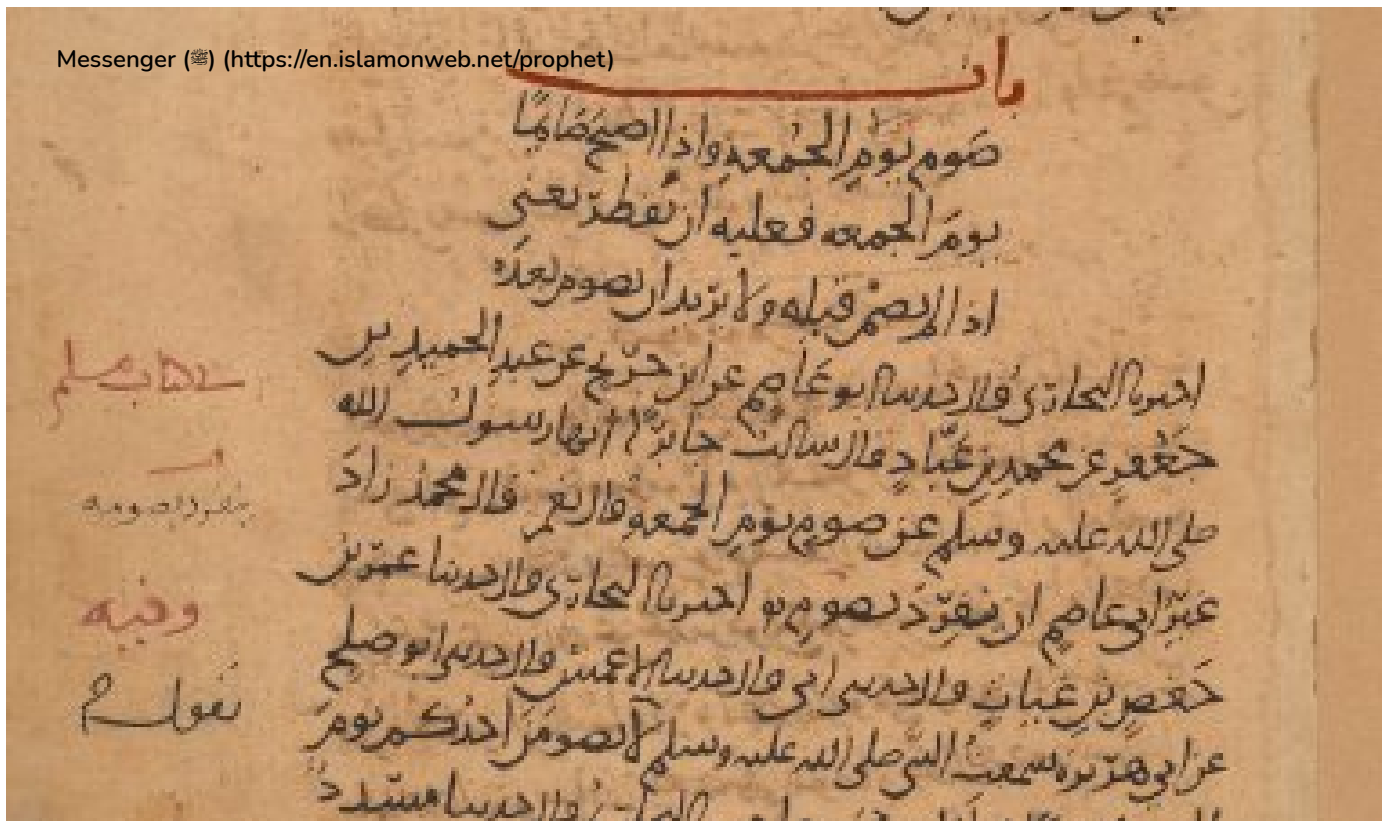 Messenger (ﷺ) (https://en.islamonweb.net/prophet)
باب
صوم يوم الجمعه واذا اصبح صايمًا
يوم الجمعه فعليه ان يفطر يعنى
اذا لم يصم قبله ولا يريد ان يصوم بعده
اخبرنا البخارى قال حدثنا ابو عاصم عن ابن جريج عن عبد الحميد بن
جعفر عن محمد بن عباد قال سالت جابرًا انها رسول الله
صلى الله عليه وسلم عن صوم يوم الجمعه قال نعم قال محمد زاد
غير ابى عاصم ان ينفرد بصوم اخبرنا البخارى قال حدثنا عمر بن
حفص بن غياث قال حدثنى ابى قال حدثنا الاعمش قال حدثنى ابو صلح
عن ابى هريره سمعت النبى صلى الله عليه وسلم لا يصومن احدكم يوم
البخارى قال حدثنا مسدد
ينفرد بصومه
وفيه
يقول